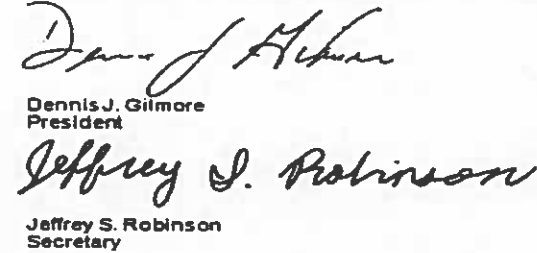 Dennis J. Gilmore
Dennis J. Gilmore
President
Jeffrey S. Robinson
Jeffrey S. Robinson
Secretary